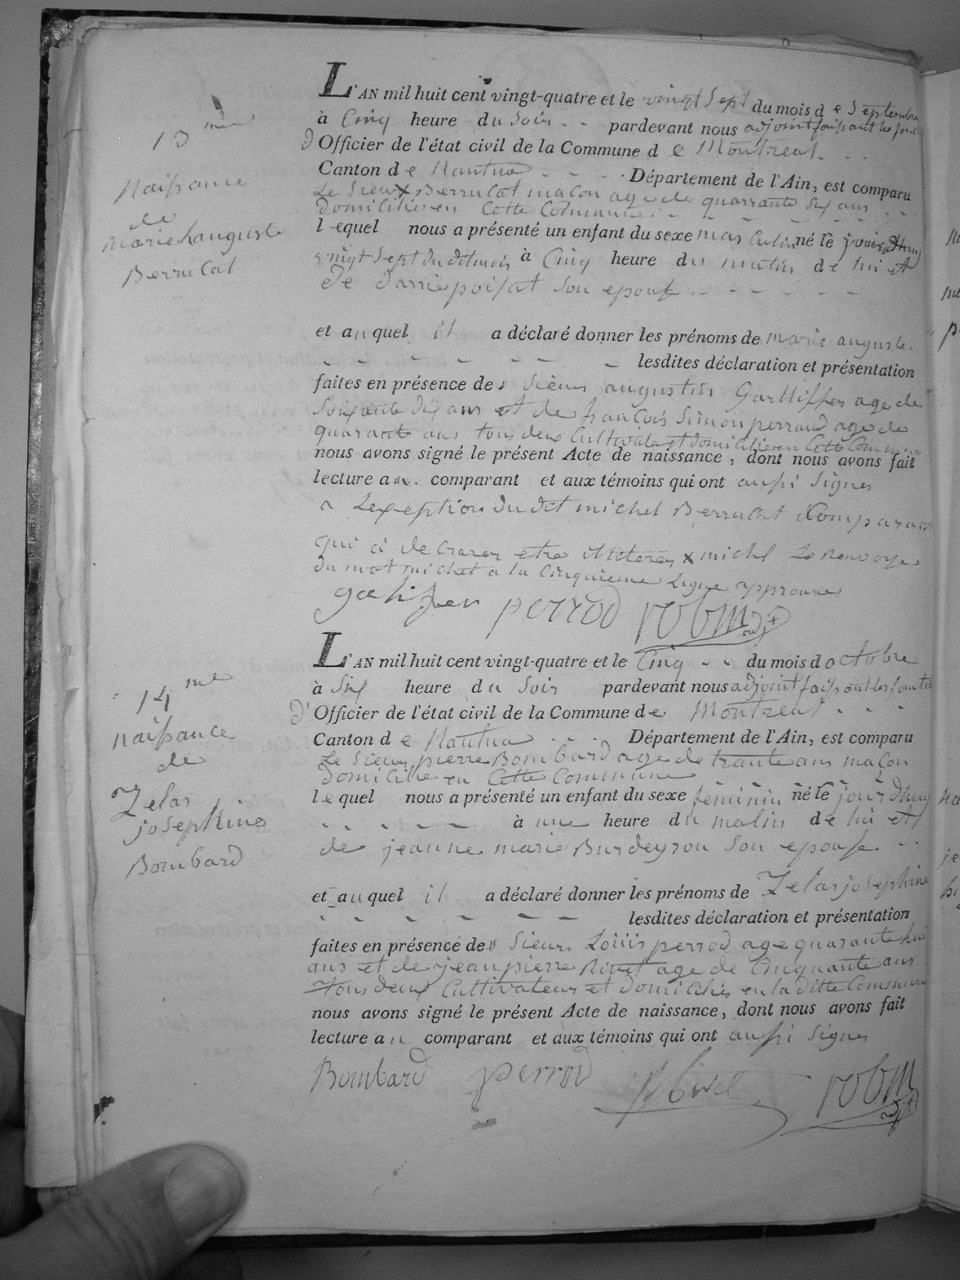 13 me
Naissance
de
marie auguste
Berrucat
L'AN mil huit cent vingt-quatre et le vingt Sept du mois de Septembre
à Cinq heure du Soir - - pardevant nous adjoint faisant les fonc
d'Officier de l'état civil de la Commune de Montreal - -
Canton de Nantua - - - - Département de l'Ain, est comparu
Le Sieur x Berrucat maçon age de quarante six ans - -
domicilié en Cette Commune - - - - - -
lequel nous a présenté un enfant du sexe mas Culin né le jourdhuy
vingt Sept du dit mois à Cinq heure du matin de lui et
de poisat Son epouse - - - - - -
et auquel il a déclaré donner les prénoms de marie auguste.
- - - - - - - lesdites déclaration et présentation
faites en présence des Sieur augustin age de
Soixante dix ans et de françois Simon perraud age de
quarante ans tous deux Cultivateurs et domiciliés en Cette Commune
nous avons signé le présent Acte de naissance, dont nous avons fait
lecture au comparant et aux témoins qui ont aussi Signes
a Lexception du dit michel Berrucat Comparant
qui a declarer etre x michel Le Renvoye
du mot michel a la Cinquieme Ligne approuve
galifer perrod robin adjt
14 me
naissance
de
Zelas
josephine
Bombard
L'AN mil huit cent vingt-quatre et le Cinq - - du mois doctobre
à Six heure du Soir pardevant nous adjoint faisant les fonctio
d'Officier de l'état civil de la Commune de Montreal - - -
Canton de Nantua - - - Département de l'Ain, est comparu
Le Sieur pierre Bombard age de trante ans maçon
domicilié en Cette Commune - - - - - -
lequel nous a présenté un enfant du sexe feminin né le jourdhuy
- - - - - à une heure du matin de lui et
de jeanne marie Burdeyron Son epouse - -
et auquel il a déclaré donner les prénoms de Zelas josephine
- - - - - - - lesdites déclaration et présentation
faites en présence des Sieur Louis perrod age quarante hui
ans et de jean pierre age de Cinquante ans
tous deux Cultivateurs et domiciliés en la ditte Commune
nous avons signé le présent Acte de naissance, dont nous avons fait
lecture au comparant et aux témoins qui ont aussi Signes
Bombard perrod robin adjt